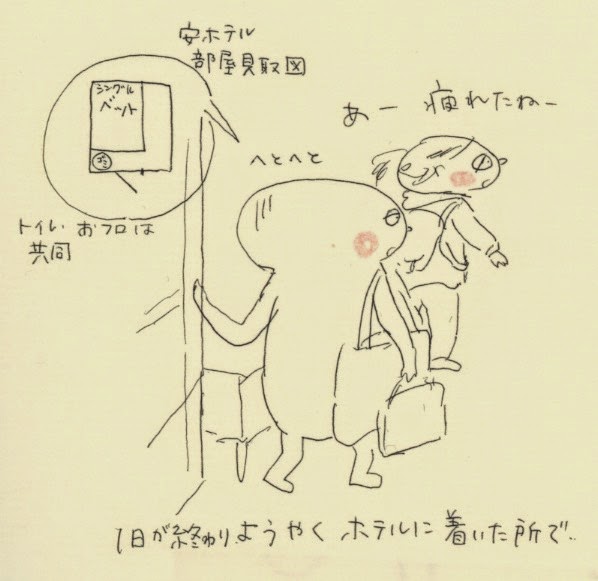 安ホテル
部屋見取図
シングル
ベット
ゴミ
トイレ おフロは
共同
あー 疲れたねー
へとへと
1日が終わり、ようやく ホテルに 着いた所で…